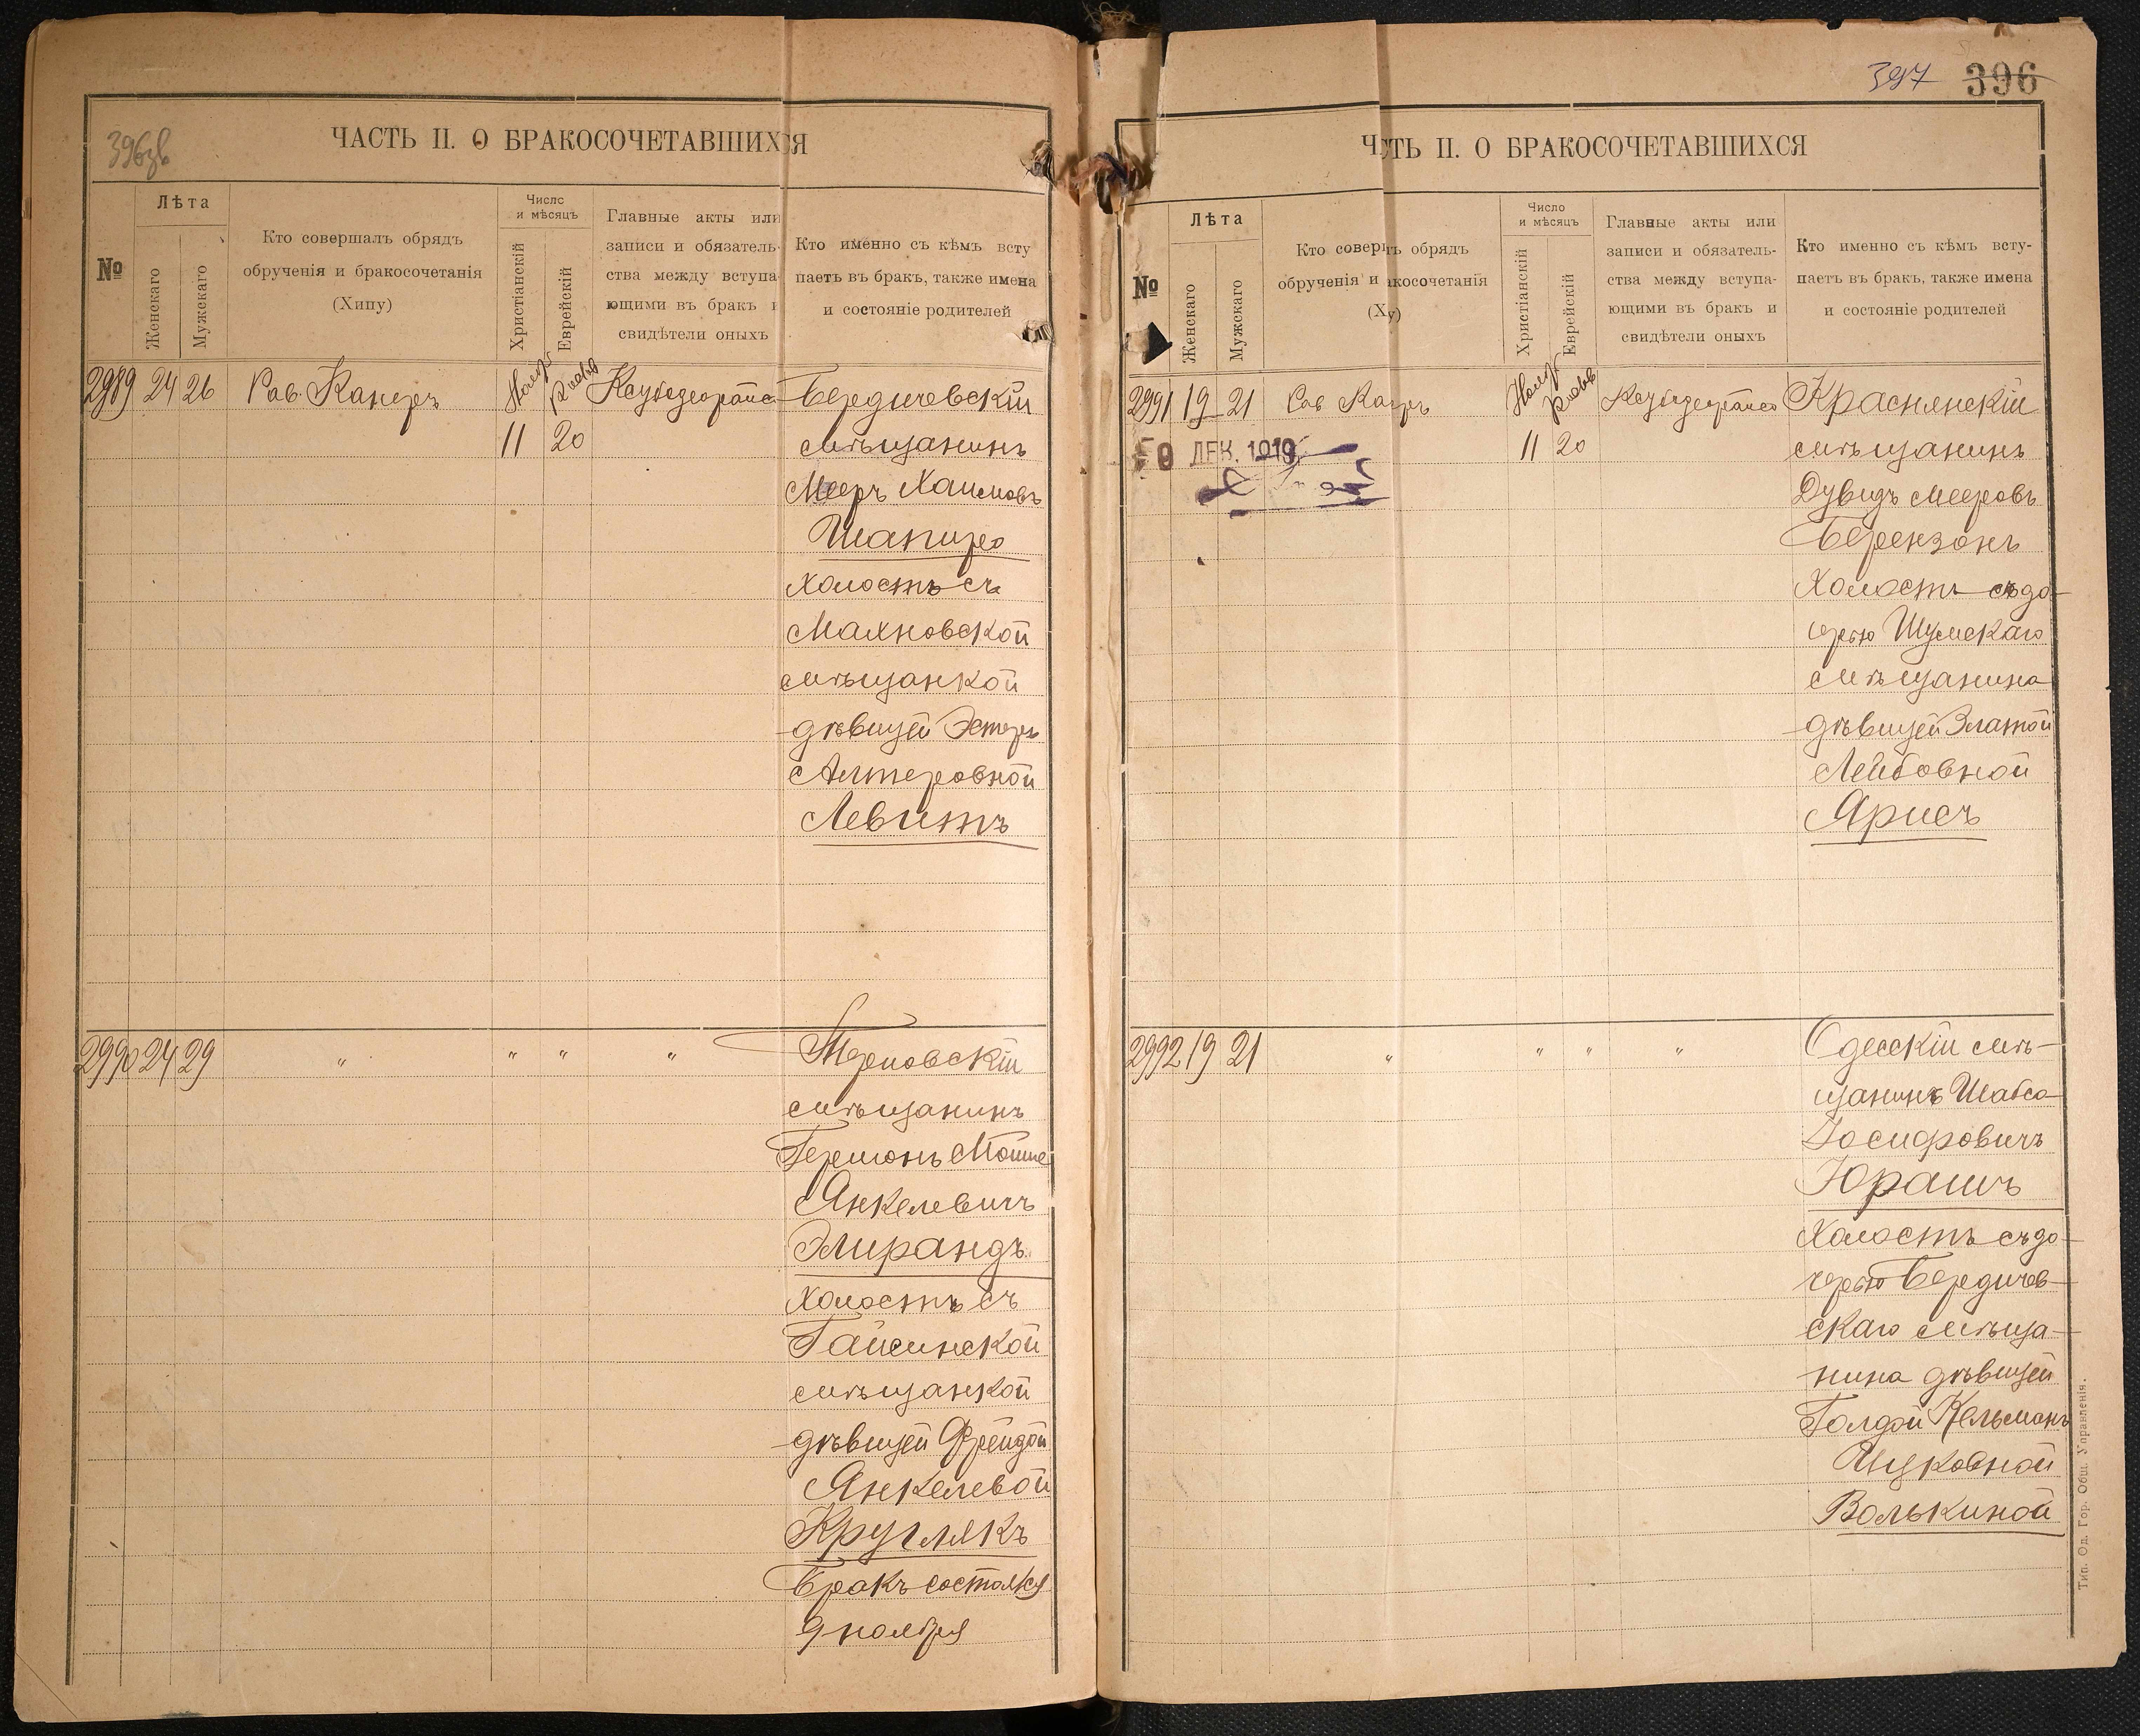 396зв
ЧАСТЬ II. О БРАКОСОЧЕТАВШИХСЯ
№
Лѣта
Женскаго
Мужскаго
Кто совершалъ обрядъ
обрученія и бракосочетанія
(Хипу)
Число
и мѣсяцъ
Христіанскій
Еврейскій
Главные акты или
записи и обязатель-
ства между вступа
ющими въ бракъ и
свидѣтели оныхъ
Кто именно съ кѣмъ всту
паетъ въ бракъ, также имена
и состояніе родителей
2989 24 26 Рав. Канеръ Ноябр Кислев
11 20
Бердичевскій
мѣщанинъ
Мееръ Хаимовъ
Шапиро
холостъ съ
Махновской
мѣщанкой
дѣвицей Эстеръ
Алтеровной
Левитъ
2990 24 29 " " " "
Терновскій
мѣщанинъ
Гершонъ Мойше
Янкелевичъ
Элирандъ
холостъ съ
Гайсинской
мѣщанкой
дѣвицей Фрейдой
Янкелевой
Круглякъ
Бракъ состоялся
9 ноября
397 396
ЧСТЬ II. О БРАКОСОЧЕТАВШИХСЯ
№
Лѣта
Женскаго
Мужскаго
Кто соверш ъ обрядъ
обрученія и акосочетанія
(Ху)
Число
и мѣсяцъ
Христіанскій
Еврейскій
Главные акты или
записи и обязатель-
ства между вступа-
ющими въ бракъ и
свидѣтели оныхъ
Кто именно съ кѣмъ всту-
паетъ въ бракъ, также имена
и состояніе родителей
2991 19 21 Рав Канеръ Ноябр Кислев
11 20
ДЕК. 1919
Краснянскій
мѣщанинъ
Дувидъ Мееровъ
Берензонъ
Холостъ съ до-
черью Шумскаго
мѣщанина
дѣвицей Златой
Лейбовной
Ярисъ
2992 19 21 " " " "
Одесскій мѣ-
щанинъ Шабса
Іосифовичъ
Юрашъ
Холостъ съ до-
черью Бердичев-
скаго мѣща-
нина дѣвицей
Голдой Кельманъ
Ицковной
Волькиной
Тип. Од. Гор. Общ. Управленія.